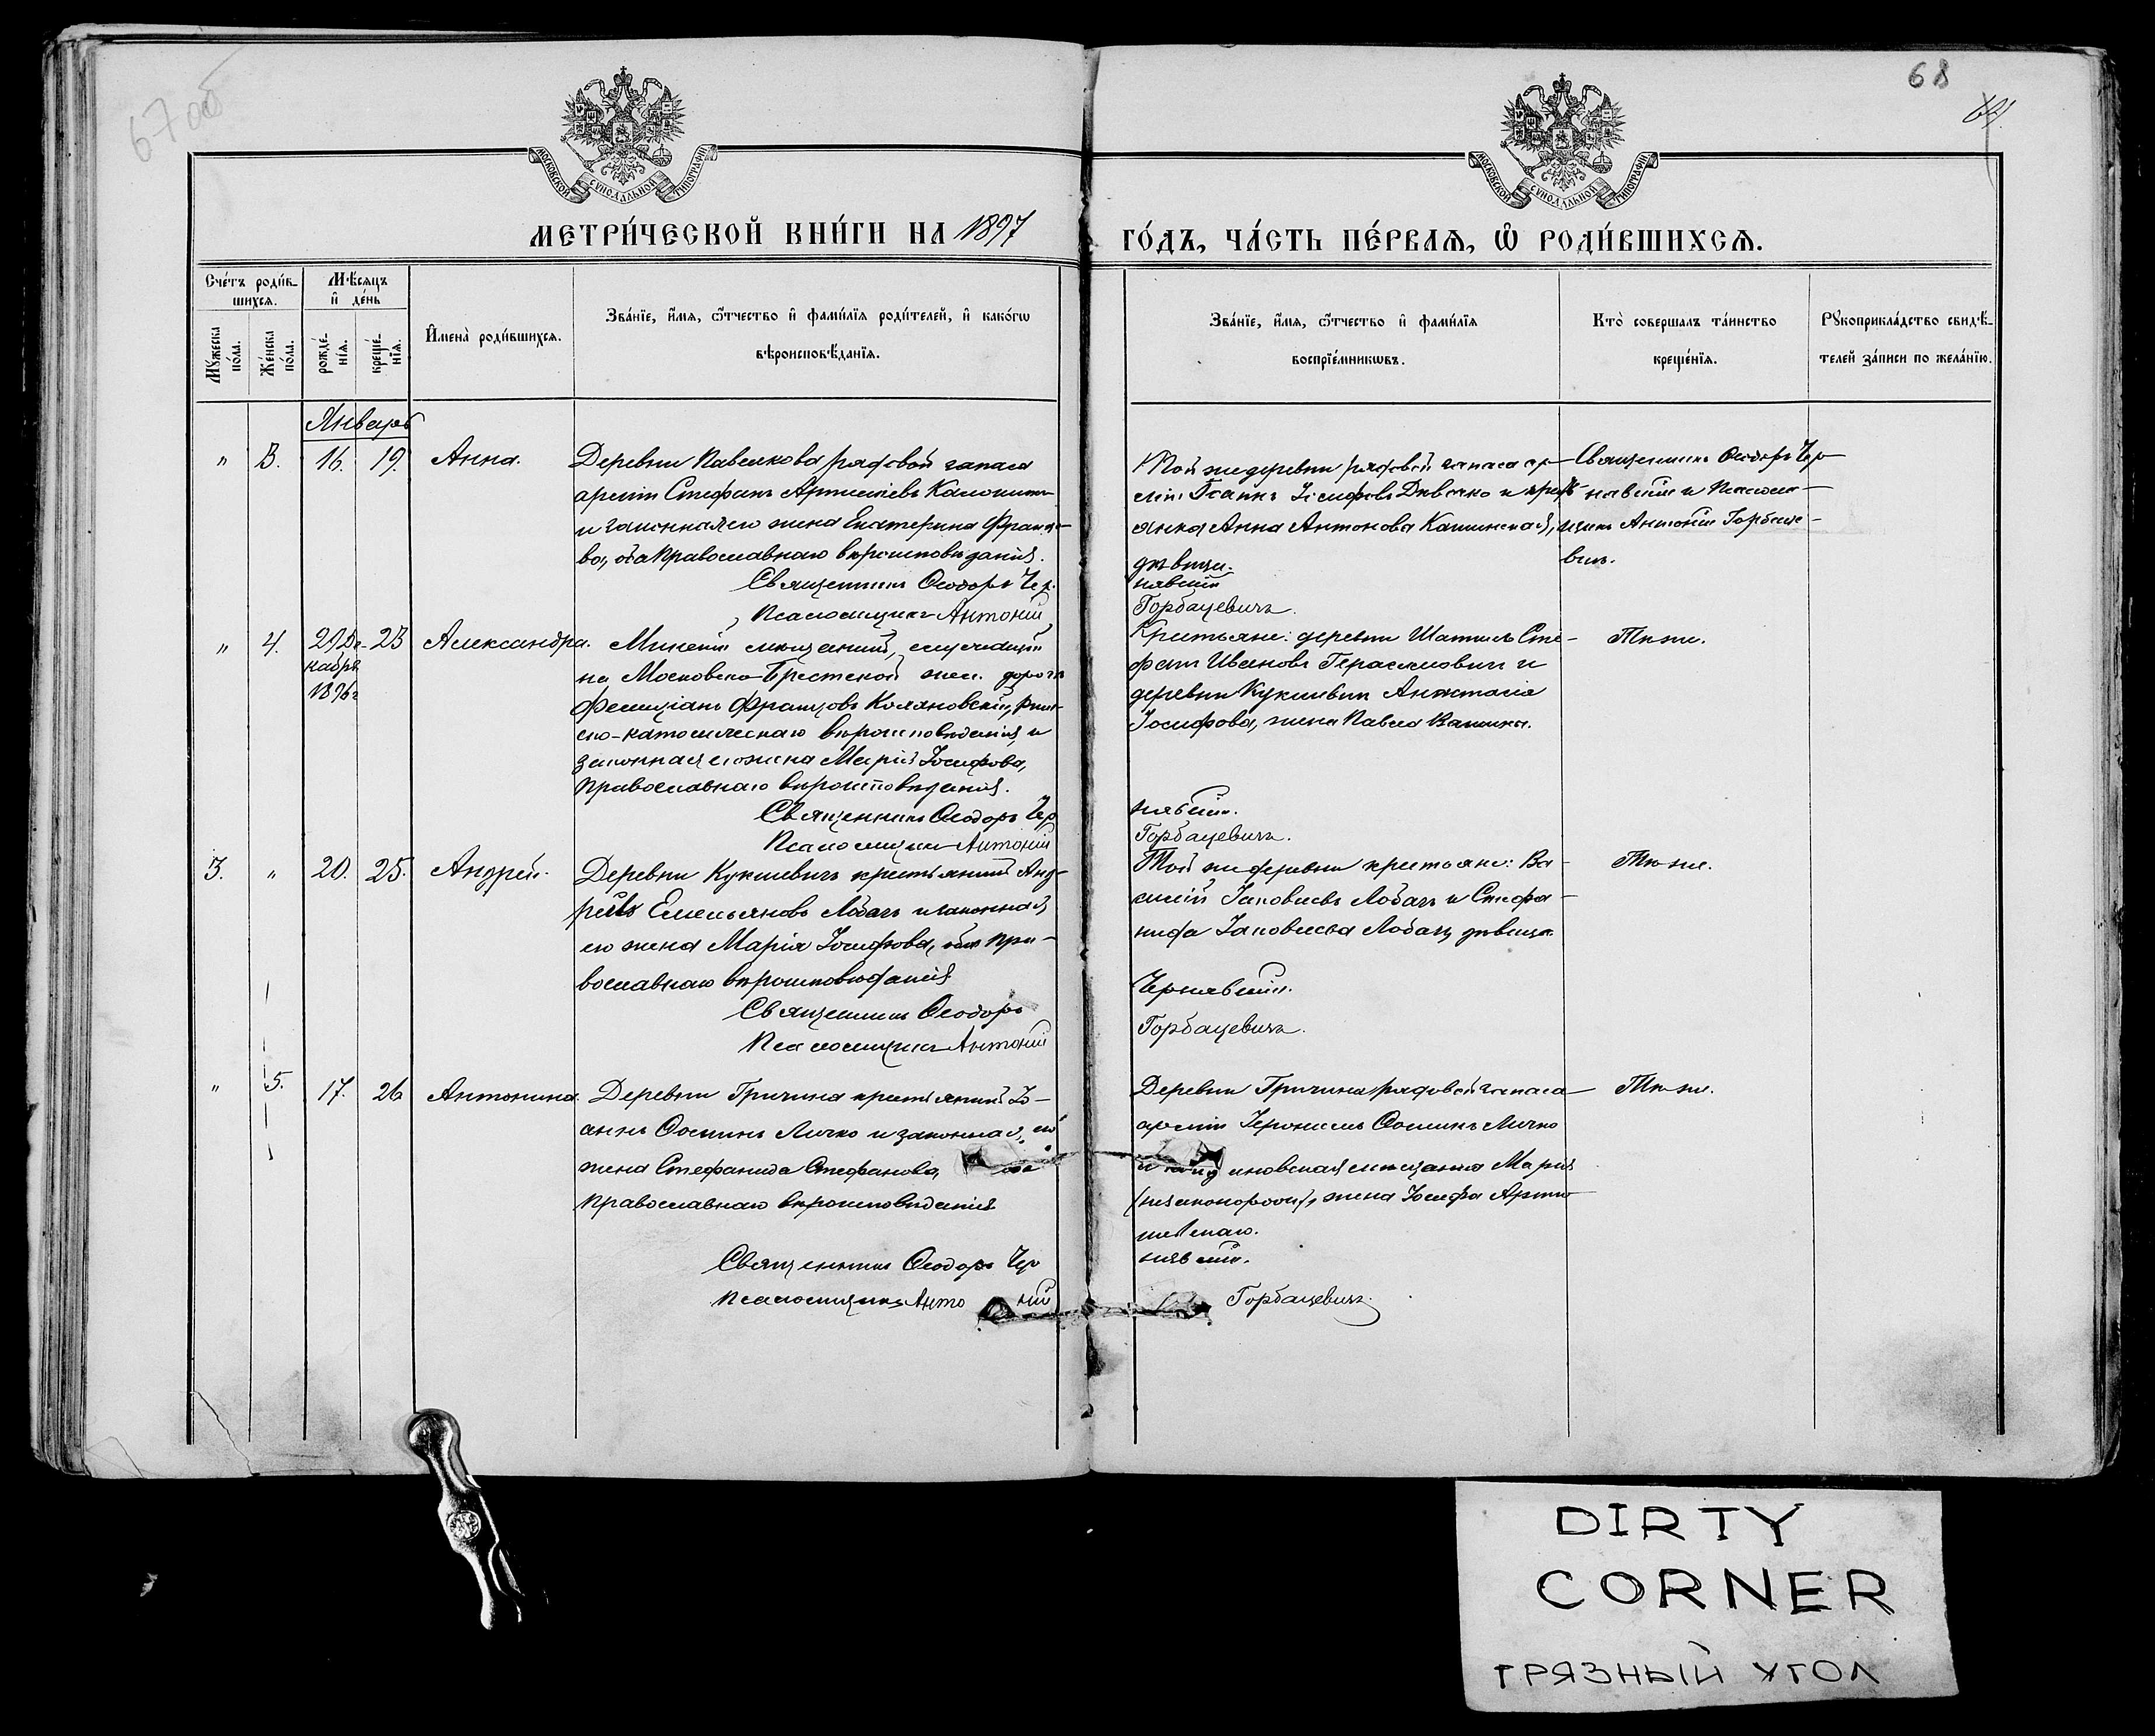 67об
68
МОСКОВСКОЙ СѴНОДАЛЬНОЙ ТИПОГРАФІИ
МОСКОВСКОЙ СѴНОДАЛЬНОЙ ТИПОГРАФІИ
МЕТРИ́ЧЕСКОЙ КНИ́ГИ НА 1897 ГО́ДЪ, ЧА́СТЬ ПЕ́РВАѦ, Ѡ РОДИ́ВШИХСѦ.
Сче́тъ роди́в-
шихсѧ.
Му́жеска по́ла.
Же́нска по́ла.
Мѣ́сѧцъ и҆ де́нь
рожде́-
нїѧ.
креще́-
нїѧ.
И҆мена̀ роди́вшихсѧ.
Зва́нїе, и҆́мѧ, ѻ҆́тчество и҆ фами́лїѧ роди́телей, и҆ како́гѡ
вѣроисповѣ́данїѧ.
Зва́нїе, и҆́мѧ, ѻ҆́тчество и҆ фами́лїѧ
воспрїе́мникѡвъ.
Кто̀ соверша́лъ та́инство
креще́нїѧ.
Рꙋкоприкла́дство свидѣ́-
телей за́писи по жела́нїю.
Январь
" 3. 16. 19. Анна.
Деревни Павелкова рядовой запаса
арміи Стефанъ Артемьевъ
и законная его жена Екатерина Францо-
ва, оба православнаго вѣроисповѣданія.
Священникъ Ѳеодоръ Чер-
Псаломщикъ Антоній
Той же деревни рядовой запаса ар-
міи Іосифовъ и кресть-
янка Анна Антонова
дѣвица.
нявскій
Горбацевичъ.
Священникъ Ѳеодоръ Чер-
нявскій и Псалом-
щикъ Антоній Горбаце-
вичъ.
" 4. 29 Де- 23 Александра.
кабря
1896 г
Минскій мѣщанинъ, служащій
на Московско-Брестской жел. дорогѣ
Фелиціанъ Францовъ Коляновскій, рим-
ско-католическаго вѣроисповѣданія, и
законная его жена Марія Іосифова,
православнаго вѣроисповѣданія.
Священникъ Ѳеодоръ Чер
Псаломщикъ Антоній
Крестьяне: деревни Шатилъ Сте-
фанъ Ивановъ Герасимовичъ и
деревни Кукшевичъ Анастасія
Іосифова, жена Павла
нявскій.
Горбацевичъ.
Тѣ же.
3. " 20. 25. Андрей.
Деревни Кукшевичъ крестьянинъ Анд-
рей Емельяновъ Лобачъ и законная
его жена Марія Іосифова, оба пра-
вославнаго вѣроисповѣданія
Священникъ Ѳеодоръ
Псаломщикъ Антоній
Той же деревни крестьяне: Ва-
силій Іаковлевъ Лобачъ и Стефа-
нида Іаковлева Лобачъ, дѣвица.
Чернявскій.
Горбацевичъ.
Тѣ же.
" 5. 17. 26 Антонина.
Деревни Гричина крестьянинъ Іо-
аннъ Ѳоминъ Личко и законная его
жена Стефанида Стефанова, оба
православнаго вѣроисповѣданія
Священникъ Ѳеодоръ Чер
Псаломщикъ Антоній
Деревни Гричина рядовой запаса
арміи Іеронимъ Ѳоминъ Личко
и мѣщанка Марія
жена Іосифа
нявскій.
Горбацевичъ.
Тѣ же.
DIRTY
CORNER
ГРЯЗНЫЙ УГОЛ